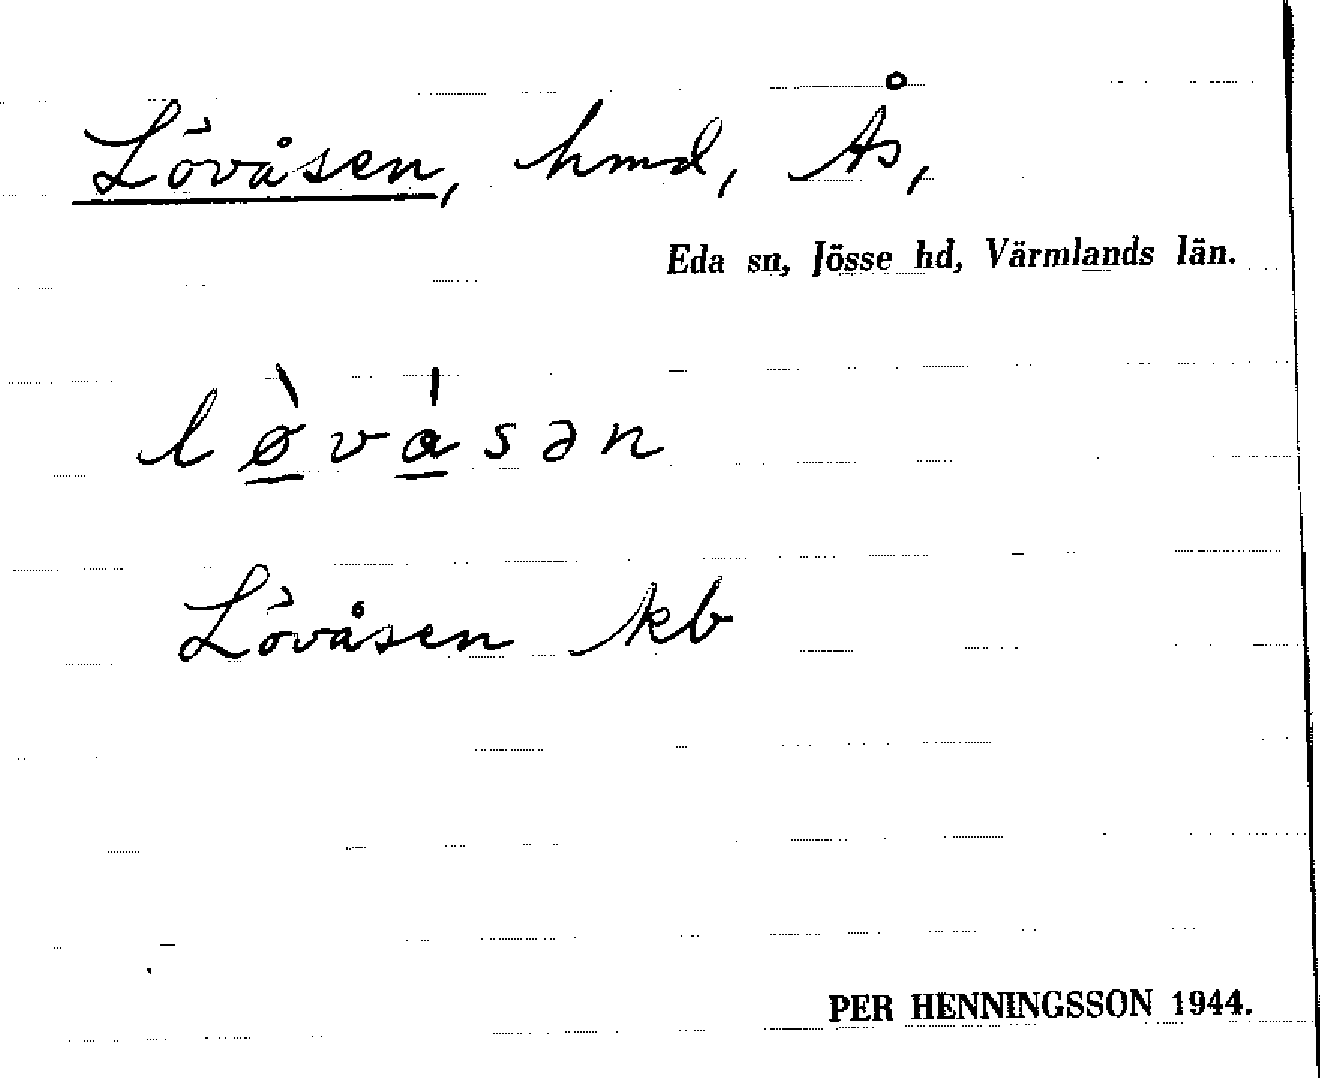 Lövåsen, hmd, Ås,
Eda sn, Jösse hd, Värmlands län.
lø̱̀vá̱sən
Lövåsen kb
PER HENNINGSSON 1944.